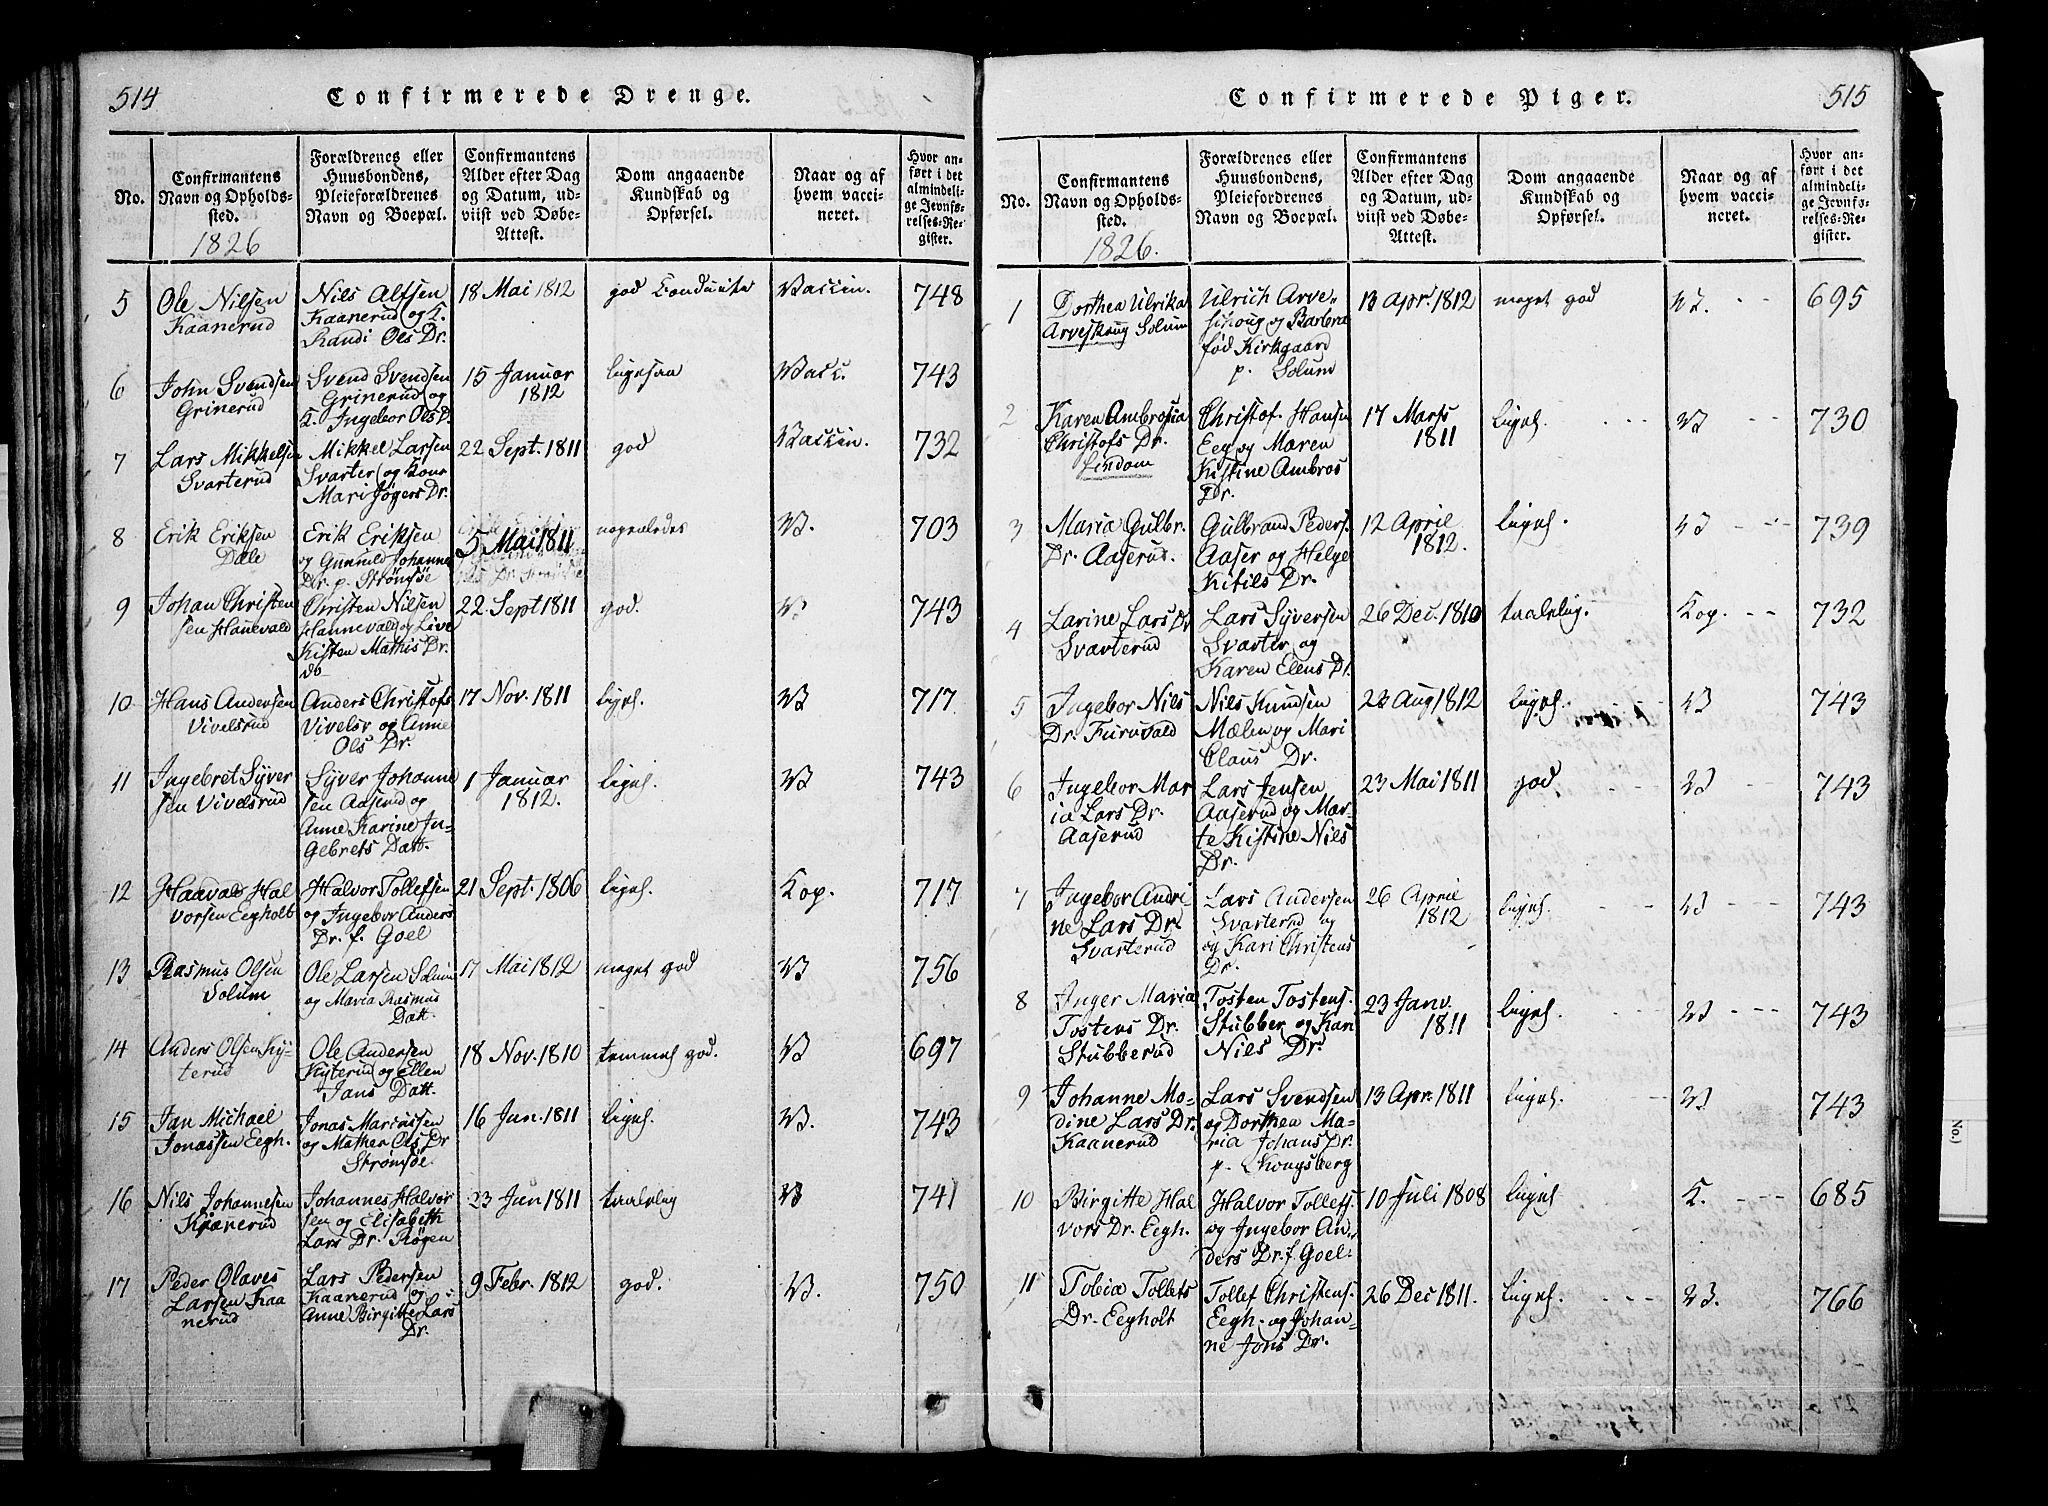 514
Confirmerede Drenge.
No.
Confirmantens
Navn og Opholds-
sted.
1826
Forældrenes eller
Huusbondens,
Pleieforældrenes
Navn og Boepæl.
Confirmantens
Alder efter Dag
og Datum, ud-
viist ved Døbe-
Attest.
Dom angaaende
Kundskab og
Opførsel.
Naar og af
hvem vacci-
neret.
Hvor an-
ført i det
almindeli-
ge Jevnfø-
relses-Re-
gister.
5
Ole Nilsen
Kaanerud
Nils Alfsen
Kaanerud og K.
Randi Ols Dr.
18 Mai 1812
god Conduite
Vaccin.
748
6
John Svendsen
Grinerud
Svend Svendsen
Grinerud og
K. Ingebor Ols D.
15 Januar
1812
ligesaa
Vacc.
743
7
Lars Mikkelsen
Svarterud
Mikkel Larsen
Svarter og Kone
Mari Jøgers Dr.
22 Sept. 1811
god
Vaccin.
732
8
Erik Eriksen
Dale
Erik Eriksen
og Gunnuld Johanne
Dr. p. Strömsöe
5 Mai 1811
V.
703
9
Johan Christen
sen Hanevald
Christen Nilsen
Hannevald og Live
Kisten Mathis Dr.
do
22 Sept 1811
god.
V
743
10
Hans Andersen
Vivelsrud
Anders Christofs
Vivelsr og Anne
Ols Dr.
17 Nov. 1811
ligel.
V
717
11
Ingebret Syver
sen Vivelsrud
Syver Johanne
sen Aaserud og
Anne Karine In-
gebrets Datt.
1 Januar
1812.
ligel.
V
743
12
Haavald Hal
vorsen Eegholt
Halvor Tollefsen
og Ingebor Anders
Dr. f. Goel
21 Sept. 1806
ligel.
Kop.
717
13
Rasmus Olsen
Solum
Ole Larsen Solum
og Maria Rasmus
Datt.
17 Mai 1812
meget god
V
756
14
Anders Olsen Ky-
terud
Ole Andersen
Kyterud og Ellen
Jans Datt.
18 Nov. 1810
temmel god.
V
697
15
Jan Michael
Jonassen Eegh.
Jonas Mariussen
og Mathea Ols Dr
Strömsöe.
16 Jun. 1811
ligel.
V.
743
16
Nils Johannesen
Kaanerud
Johannes Halvor
sen og Elisabeth
Lars Dr. Røgen
23 Jun 1811
taalelig
V
741
17
Peder Olaves
Larsen Kaa
nerud
Lars Pedersen
Kaanerud og
Anne Birgitte Lars
Dr.
9 Febr. 1812
god.
V.
750
Confirmerede Piger.
515
No.
Confirmantens
Navn og Opholds-
sted.
1826.
Forældrenes eller
Huusbondens,
Pleiefordrenes
Navn og Boepæl.
Confirmantens
Alder efter Dag
og Datum, ud-
viist ved Døbe-
Attest.
Dom angaaende
Kundskab og
Opførsel.
Naar og af
hvem vacci-
neret.
Hvor an-
ført i det
almindeli-
ge Jevnfø-
relses-Re-
gister.
1
Dorthea Ulrika
Arveskoug Solum
Ulrich Arve-
skoug og Barbra
fød Kirkgaard
p. Solum
13 Apr. 1812
meget god
V.
695
2
Karen Ambrosia
Christofs Dr.
Lindom
Christof. Hansen
Eeg og Maren
Kistine Ambros
Dr.
17 Marts
1811
ligel.
V
730
3
Maria Gulbr.
Dr. Aaserud.
Gulbrand Peders.
Aaser og Helge
Kitils Dr.
12 Aprie
1812.
ligel.
V
739
4
Larine Lars Dr
Svarterud
Lars Syversen
Svarter og
Karen Elens Dr.
26 Dec. 1810
taalelig.
Kop.
732
5
Ingebor Nils
Dr. Furuvald
Nils Knudsen
Mælen og Mari
Claus Dr.
23 Aug 1812
ligel.
V
743
6
Ingebor Mar
ia Lars Dr.
Aaserud
Lars Jensen
Aaserud og Mar-
te Kistine Nils
Dr.
23 Mai 1811
god.
V
743
7
Ingebor Andri
ne Lars Dr.
Svarterud
Lars Andersen
Svarterud og
og Kari Christens
Dr.
26 Aprie
1812
ligel.
V
743
8
Inger Maria
Tostens Dr.
Stubberud
Tosten Tostens.
Stubber og Kari
Nils Dr.
23 Janv.
1811
ligel.
V
743
9
Johanne Mo-
dine Lars Dr.
Kaanerud
Lars Svendsen
og Dorthea Ma-
ria Johans Dr.
p. Kongsberg
13 Apr. 1811
ligel.
V
743
10
Birgitte Hal
vors Dr. Eegh.
Halvor Tollefs.
og Ingebor An-
ders Dr. f. Goel.
10 Juli 1808
ligel.
K.
685
11
Tobia Tollefs
Dr. Eegholt
Tollef Christens.
Eegh. og Johan-
ne Jons Dr.
26 Dec 1811.
ligel.
V.
766
No.)